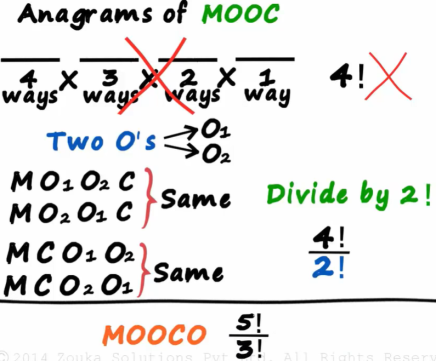 Anagrams of MOOC
4 ways × 3 ways × 2 ways × 1 way 4!
Two O's O1
O2
M O1 O2 C
M O2 O1 C
Same
Divide by 2!
4!
2!
M C O1 O2
M C O2 O1
Same
MOOCO 5!
3!
©2014 Zouka Solutions Pvt. Ltd. All Rights Reserv